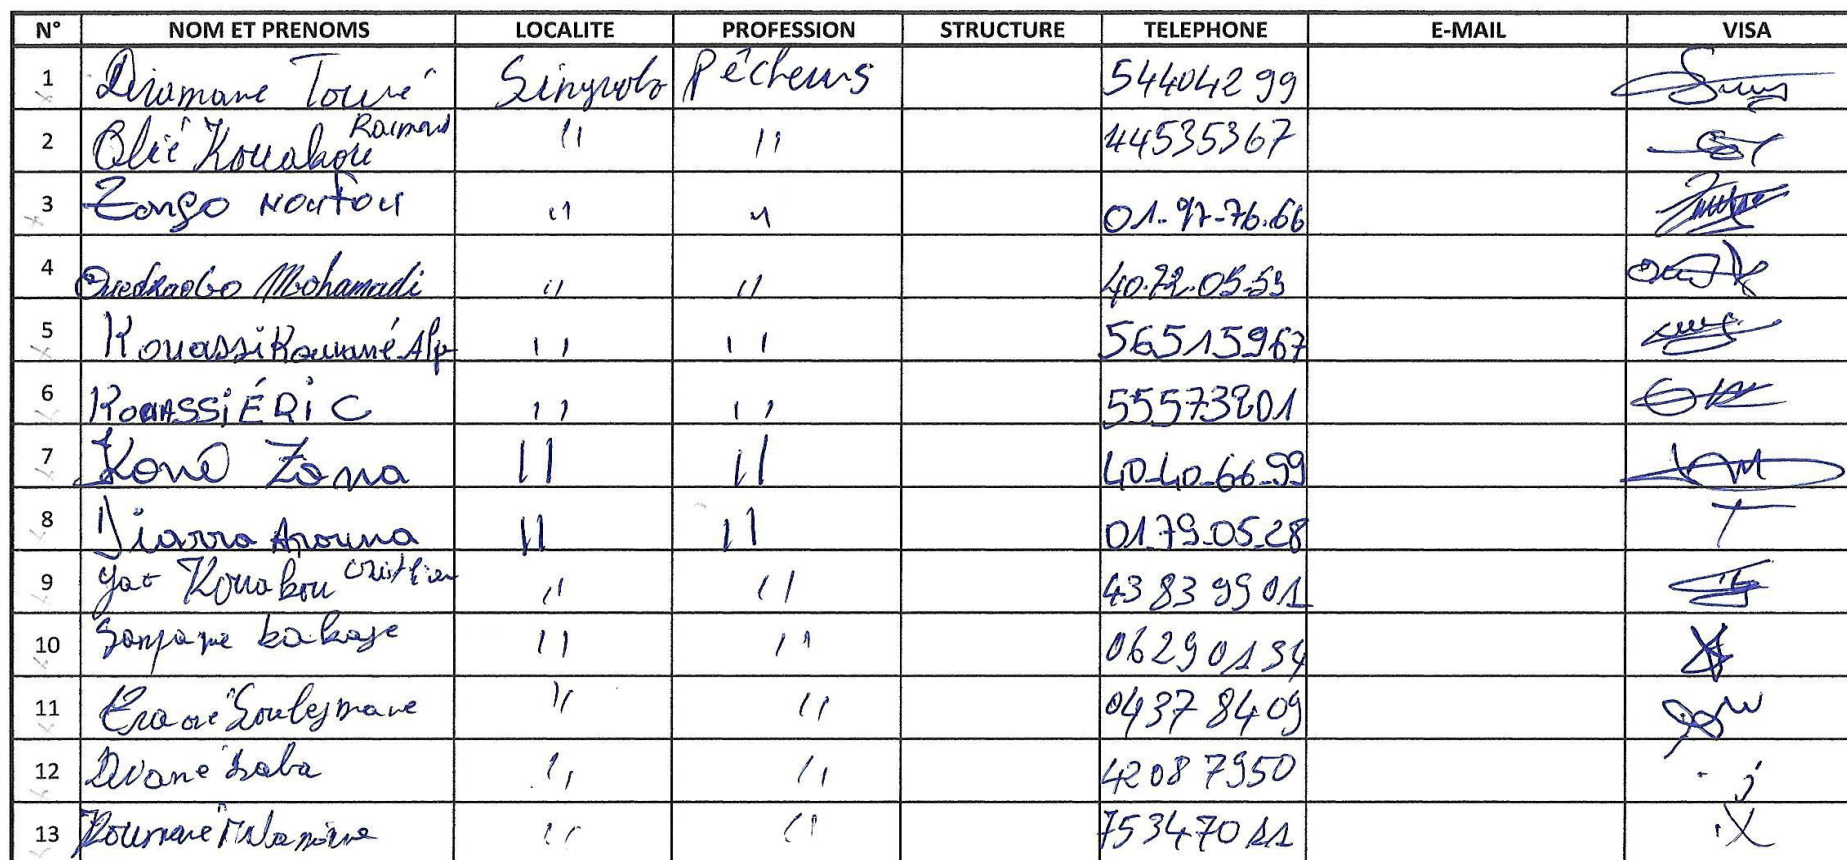 N° NOM ET PRENOMS LOCALITE PROFESSION STRUCTURE TELEPHONE E-MAIL VISA
1 Diramane Touré Pêcheurs 54404299
2 Olié Kouakou Raimond " " 44535367
3 Zongo Noufou " " 01-97-76.66
4 Ouedraogo Mohamadi " " 40.72.05.53
5 Kouassi Kouamé Alp " " 56515967
6 KOUASSI ÉRIC " " 55573801
7 Koné Zona " " 40-40-66-99
8 Diarra Arouna " " 01.79.05.28
9 Yao Kouakou " " 43839901
10 " " 06290134
11 Souleymane " " 04378409
12 " " 42087950
13 " " 75347011